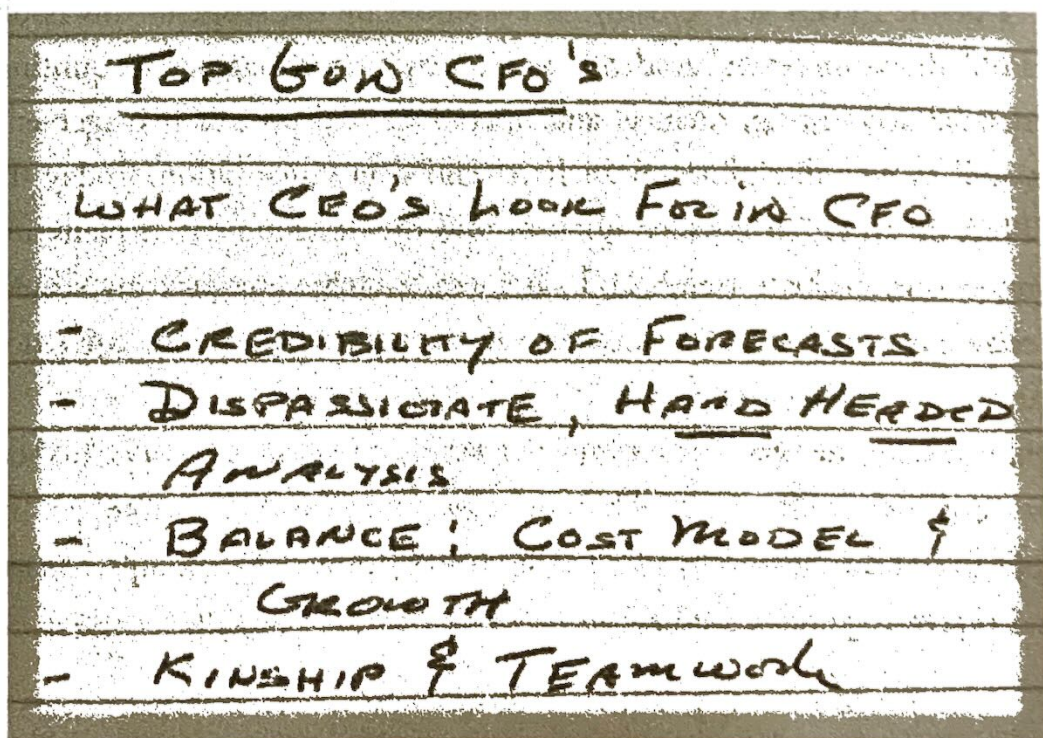 TOP GUN CFO's
WHAT CEO'S LOOK FOR IN CFO
- CREDIBILITY OF FORECASTS
- DISPASSIONATE, HARD HEADED
ANALYSIS
- BALANCE: COST MODEL &
GROWTH
- KINSHIP & TEAMWORK